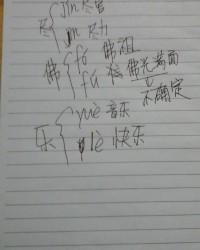 尽 { jǐn 尽管
jìn 尽力
佛 { fó 佛祖
fú 佛光满面
不确定
乐 { yuè 音乐
lè 快乐